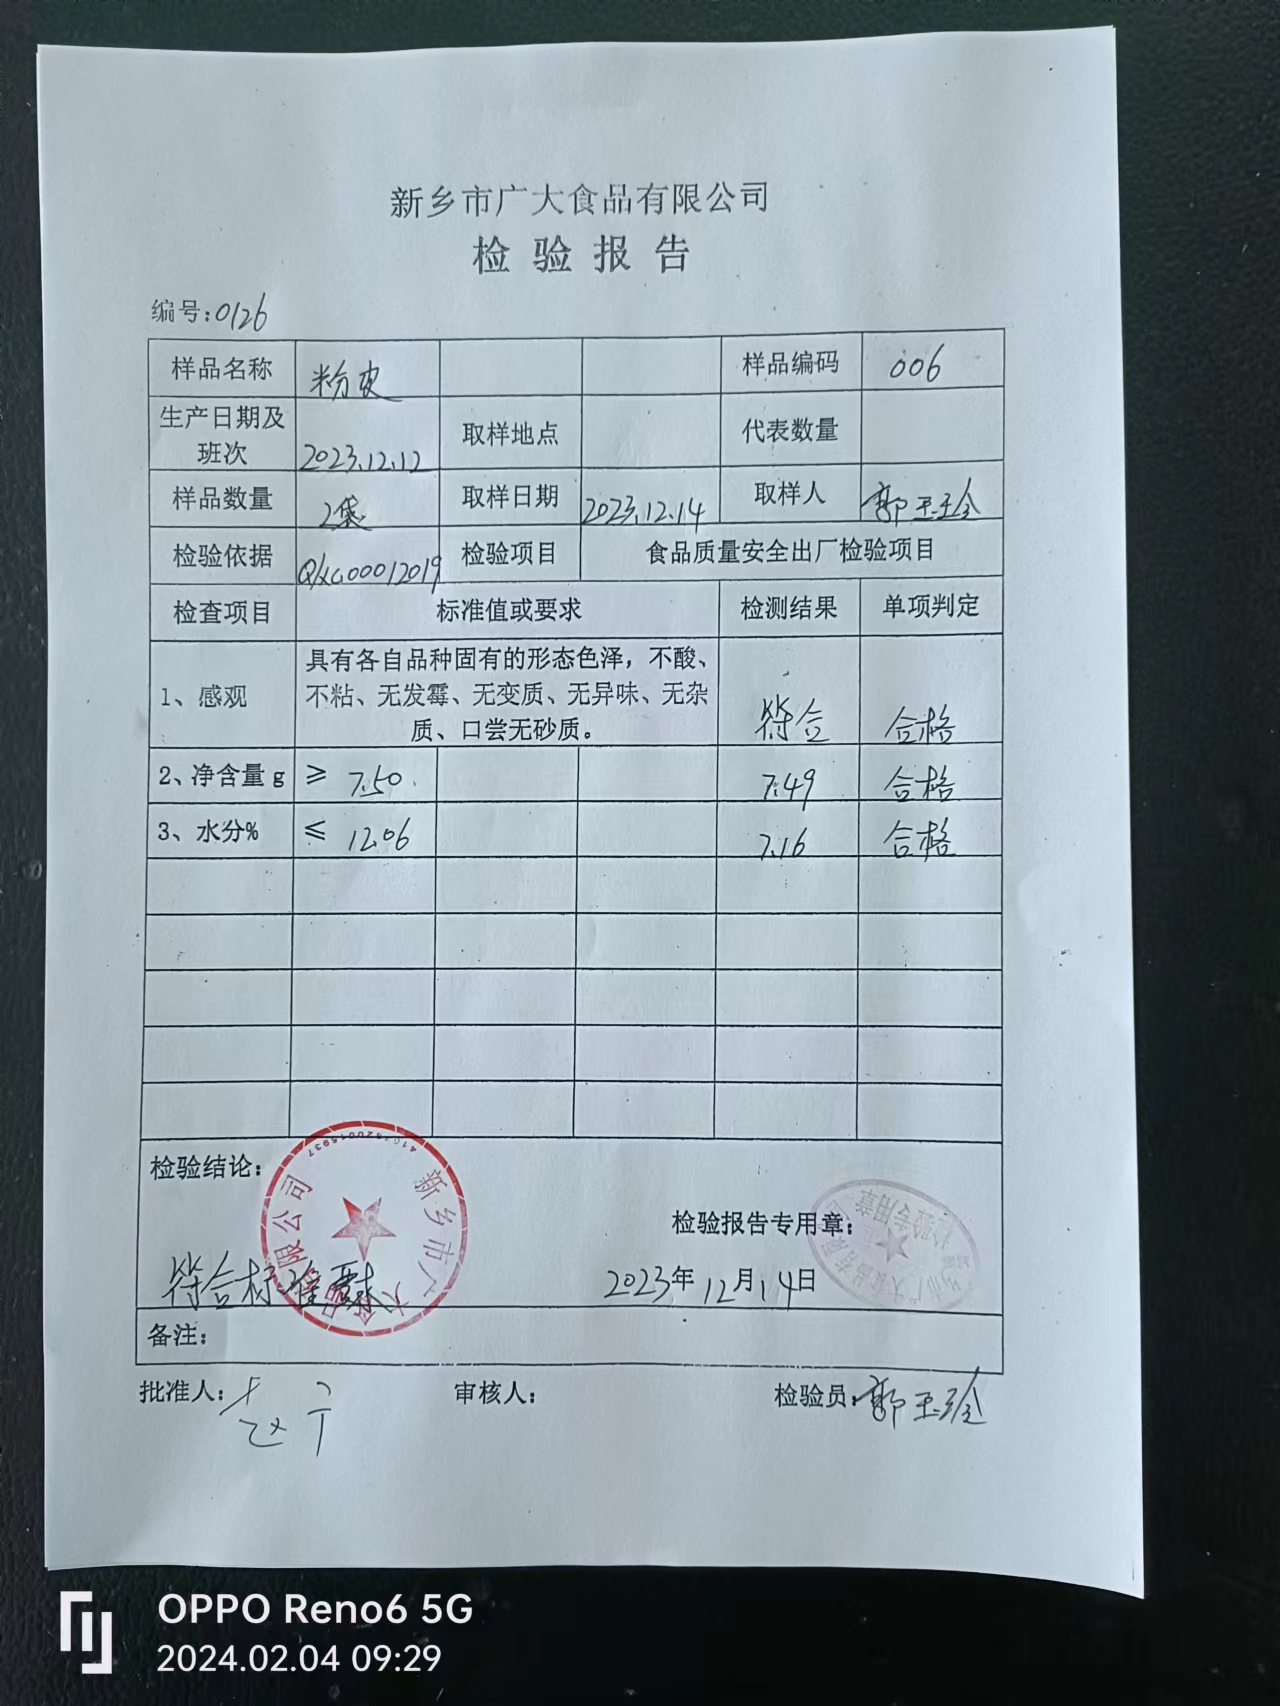 新乡市广大食品有限公司
检验报告
编号:0126
样品名称 粉皮 样品编码 006
生产日期及班次 2023.12.12 取样地点 代表数量
样品数量 2袋 取样日期 2023.12.14 取样人 郭玉玲
检验依据 检验项目 食品质量安全出厂检验项目
检查项目 标准值或要求 检测结果 单项判定
1、感观 具有各自品种固有的形态色泽，不酸、
不粘、无发霉、无变质、无异味、无杂
质、口尝无砂质。 符合 合格
2、净含量g ≥ 7.50 7.49 合格
3、水分% ≤ 12.06 7.16 合格
检验结论：
检验报告专用章：
符合标准要求
2023年12月14日
新乡市广大食品有限公司
备注：
批准人： 审核人： 检验员：郭玉玲
OPPO Reno6 5G
2024.02.04 09:29